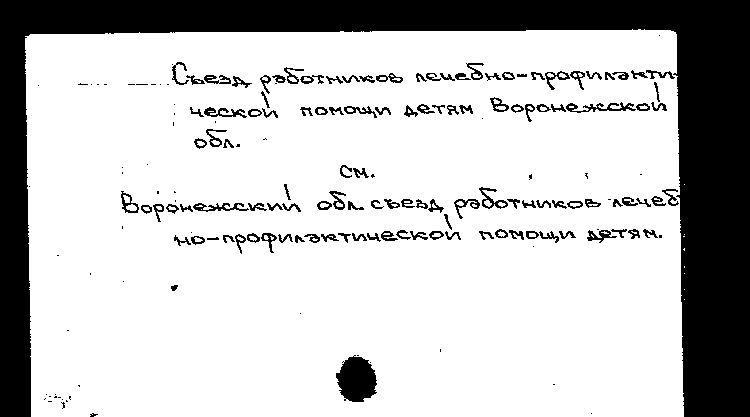 Съезд работников лечебно-профилакти-
ческой помощи детям Воронежской
обл.
см.
Воронежский обл. съезд работников лечеб
но-профилактической помощи детям.